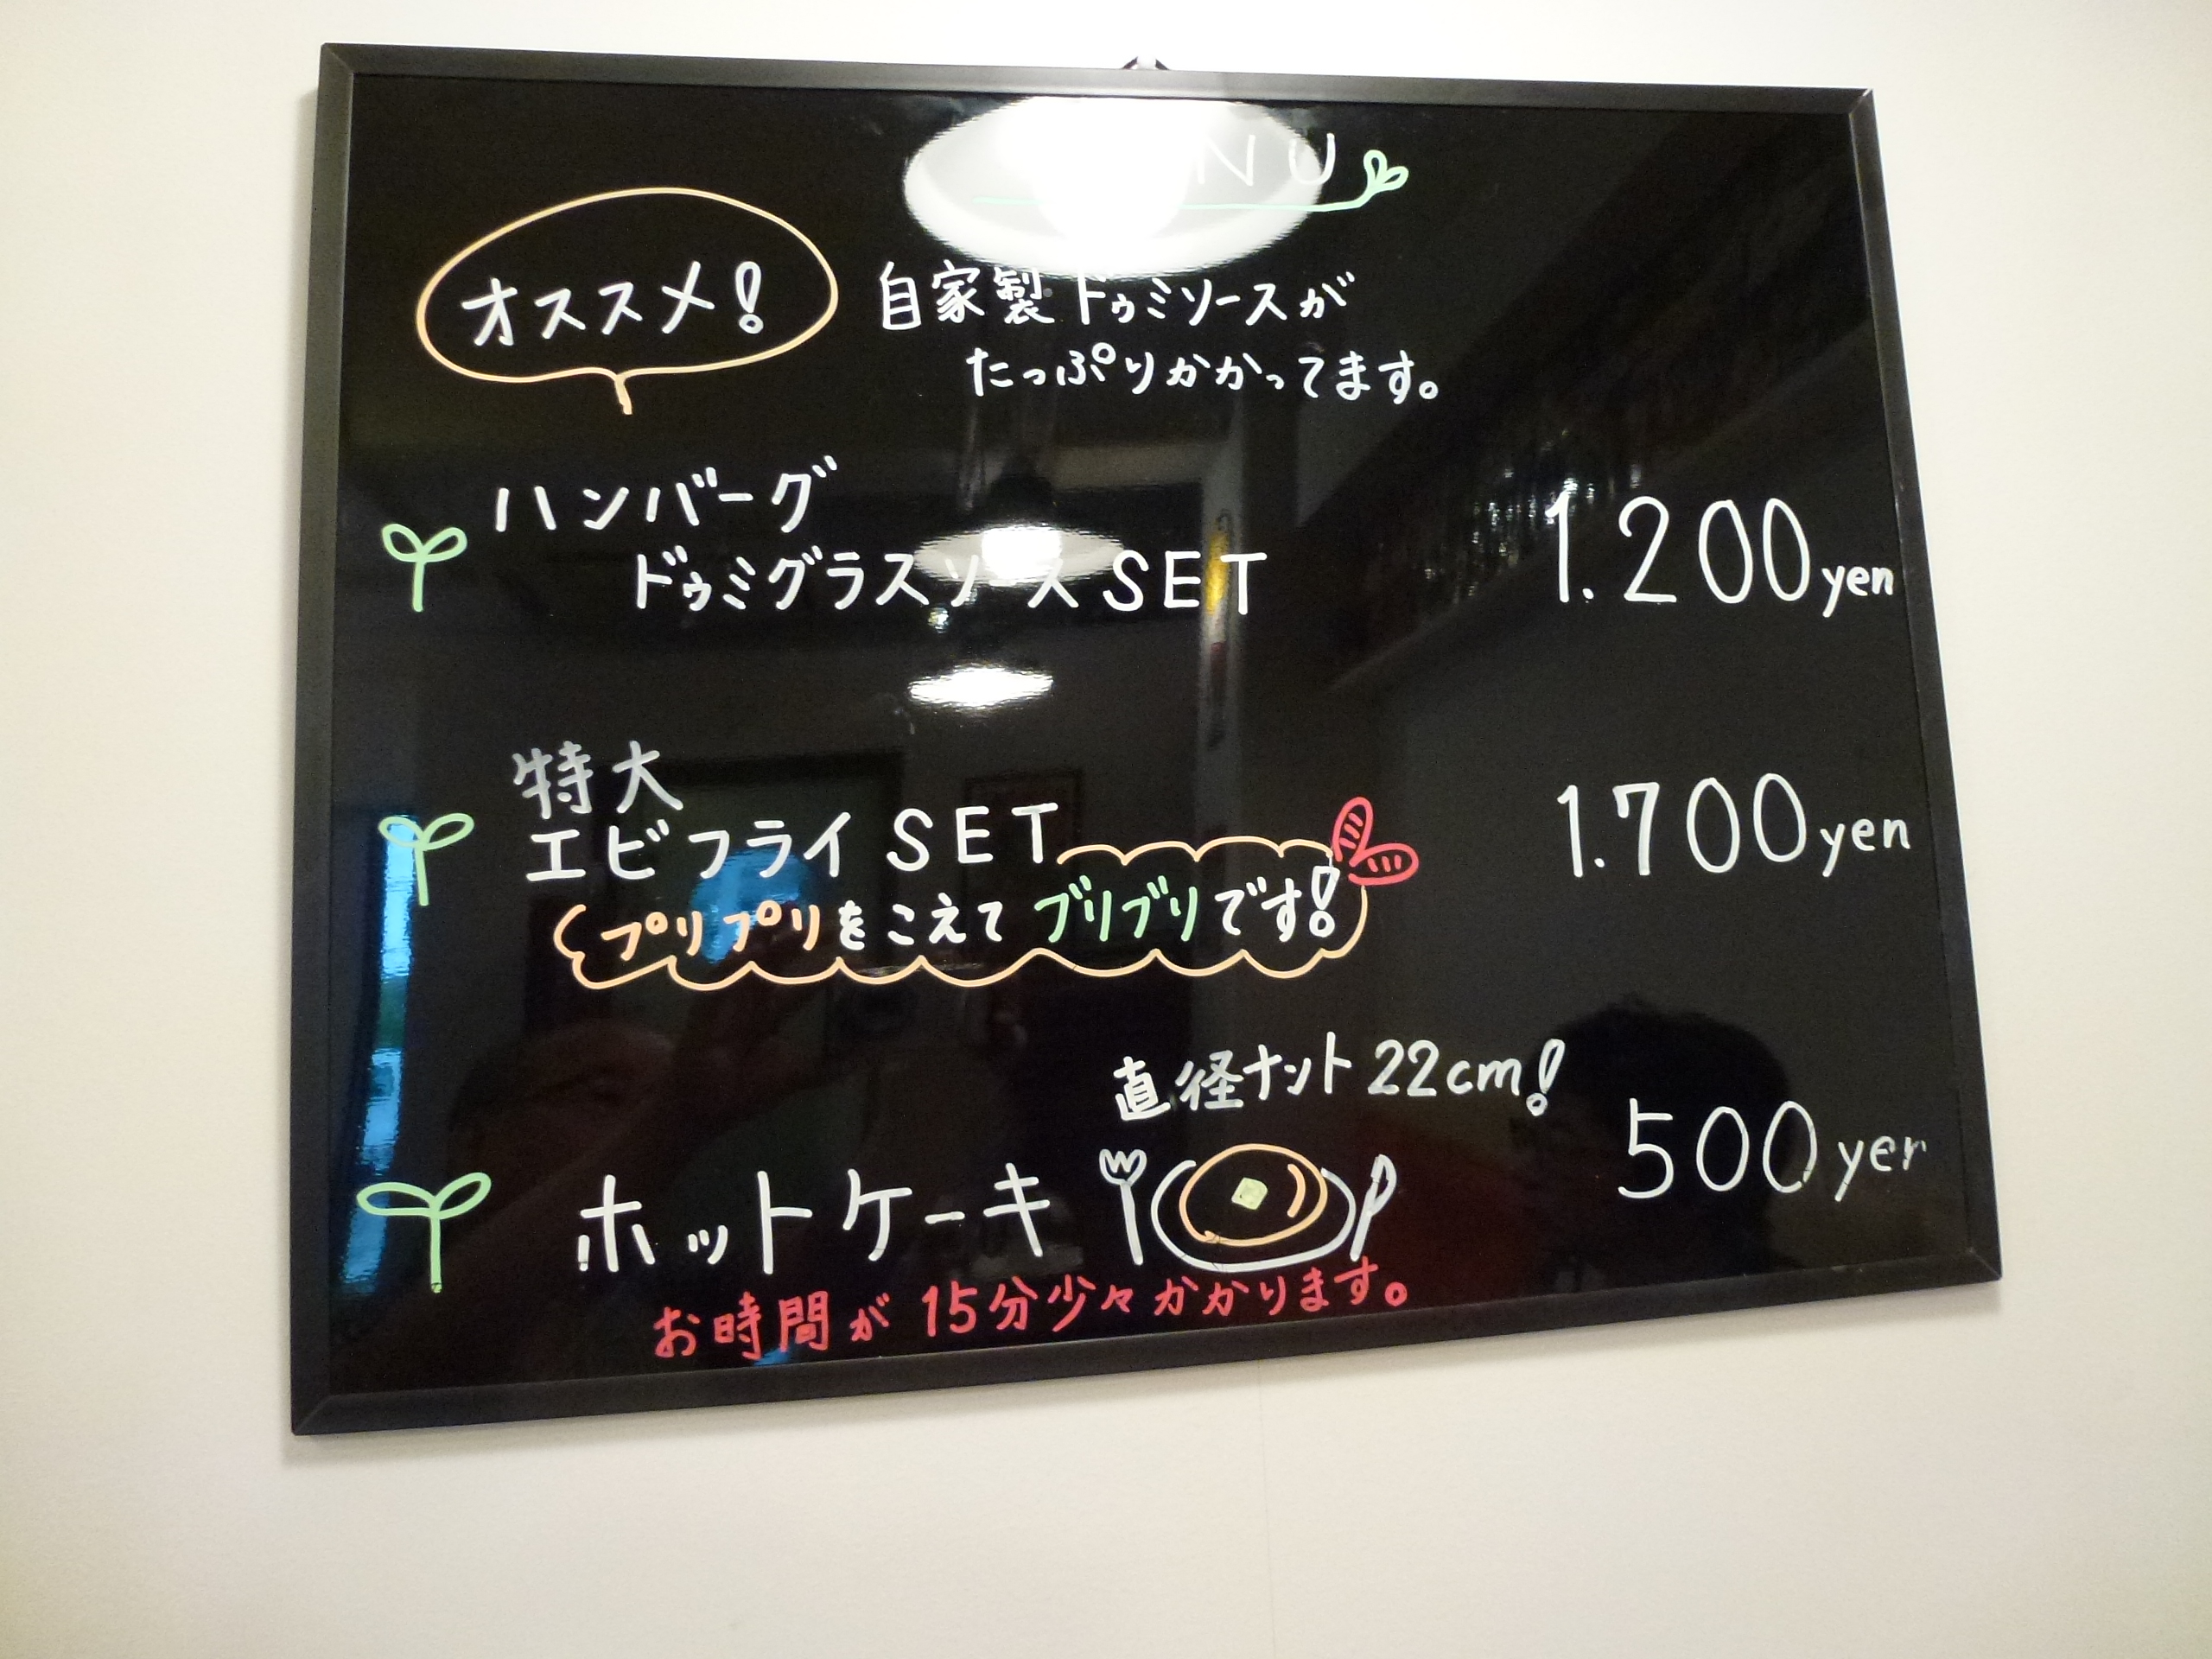 NU
オススメ!
自家製ドゥミソースが
たっぷりかかってます。
ハンバーグ
ドゥミグラスソースSET 1.200yen
特大
エビフライSET 1.700yen
プリプリをこえてブリブリです!
直径ナント22cm!
ホットケーキ 500yen
お時間が15分少々かかります。